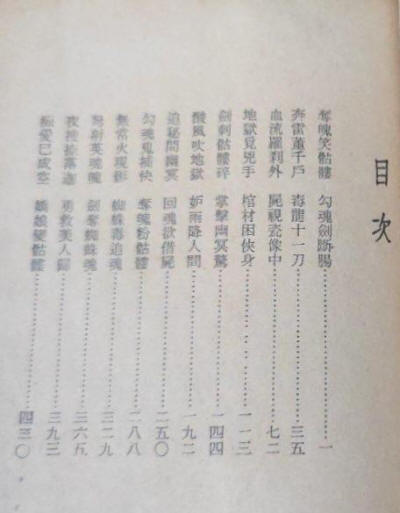 目次
奪魄笑骷髏 勾魂劍斷腸……一
奔雷董千戶 毒龍十一刀……三五
血流羅刹外 屍視瓷像中……七二
地獄覓兇手 棺材困俠身……一一三
劍刺骷髏碎 掌擊幽冥驚……一四四
酸風吹地獄 妒雨降人間……一九二
追秘問幽冥 回魂欲借屍……二五〇
勾魂鬼捕快 奪魄粉骷髏……二八八
無常火現影 蜘蛛毒追魂……三二九
射英魂魄 劍奪蜘蛛魂……三六五
夜 落迦 勇救美人歸……三九三
愛已成空 嬌娘變骷髏……四三〇